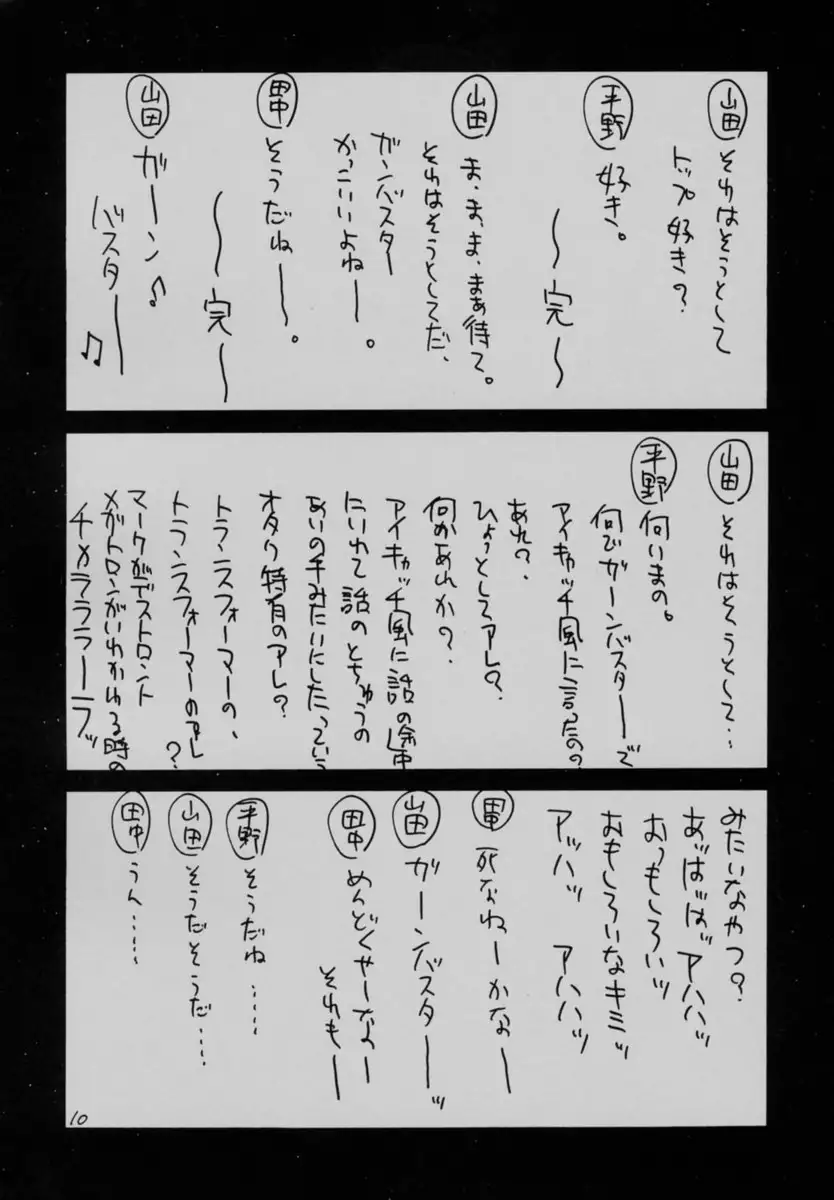 山田 それはそうとして
トップ好きの?
平野 好き。
〜完〜
山田 ま、ま、ま、まぁ待て。
それはそうとしてだ、
ガンバスター
かっこいいよねー。
田中 そうだねー。
〜完〜
山田 ガーン♪
バスター♫
山田 それはそうとして…
平野 何いまの。
何でガーンバスターーで
アイキャッチ風に言ったの?
あれ?、
ひょっとしてアレ?
何かあれか?
アイキャッチ風に話の途中
にいれて話のとちゅうの
あいの手みたいにしたっていう
オタク特有のアレ?
トランスフォーマーの、
トランスフォーマーのアレ?
マークがデストロント
メガトロンがいれかわる時の
チメラララーラッ
みたいなやつ?
あ゛ば゛ば゛アハハッ
おっもしろいッ
おもしろいなキミッ
アッハッ アハハッ
田中 死なねーかなー
山田 ガーンバスターーッ
田中 めんどくせーなー
それもー
平野 そうだね……
山田 そうだそうだ……
田中 うん……
10